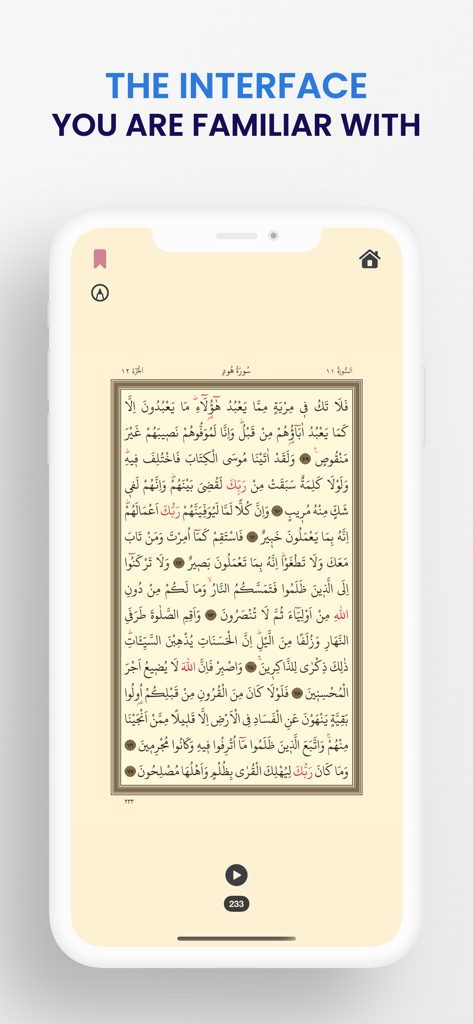 THE INTERFACE
YOU ARE FAMILIAR WITH
اَلْجُزْءُ ١٢ سُورَةُ هُودٍ اَلسُّورَةُ ١١
فَلَا تَكُ فٖي مِرْيَةٍ مِمَّا يَعْبُدُ هٰٓؤُ۬لَٓاءِۜ مَا يَعْبُدُونَ اِلَّا
كَمَا يَعْبُدُ اٰبَٓاؤُ۬هُمْ مِنْ قَبْلُۜ وَاِنَّا لَمُوَفُّوهُمْ نَصٖيبَهُمْ غَيْرَ
مَنْقُوصٍ۟ ١٠٩ وَلَقَدْ اٰتَيْنَا مُوسَى الْكِتَابَ فَاخْتُلِفَ فٖيهِۜ
وَلَوْلَا كَلِمَةٌ سَبَقَتْ مِنْ رَبِّكَ لَقُضِيَ بَيْنَهُمْۜ وَاِنَّهُمْ لَفٖي
شَكٍّ مِنْهُ مُرٖيبٍ ١١٠ وَاِنَّ كُلًّا لَمَّا لَيُوَفِّيَنَّهُمْ رَبُّكَ اَعْمَالَهُمْۜ
اِنَّهُ بِمَا يَعْمَلُونَ خَبٖيرٌ ١١١ فَاسْتَقِمْ كَمَٓا اُمِرْتَ وَمَنْ تَابَ
مَعَكَ وَلَا تَطْغَوْاۜ اِنَّهُ بِمَا تَعْمَلُونَ بَصٖيرٌ ١١٢ وَلَا تَرْكَنُٓوا
اِلَى الَّذٖينَ ظَلَمُوا فَتَمَسَّكُمُ النَّارُۙ وَمَا لَكُمْ مِنْ دُونِ
اللّٰهِ مِنْ اَوْلِيَٓاءَ ثُمَّ لَا تُنْصَرُونَ ١١٣ وَاَقِمِ الصَّلٰوةَ طَرَفَيِ
النَّهَارِ وَزُلَفًا مِنَ الَّيْلِۜ اِنَّ الْحَسَنَاتِ يُذْهِبْنَ السَّيِّـَٔاتِۜ
ذٰلِكَ ذِكْرٰى لِلذَّاكِرٖينَۚ ١١٤ وَاصْبِرْ فَاِنَّ اللّٰهَ لَا يُضٖيعُ اَجْرَ
الْمُحْسِنٖينَ ١١٥ فَلَوْلَا كَانَ مِنَ الْقُرُونِ مِنْ قَبْلِكُمْ اُو۬لُوا
بَقِيَّةٍ يَنْهَوْنَ عَنِ الْفَسَادِ فِي الْاَرْضِ اِلَّا قَلٖيلًا مِمَّنْ اَنْجَيْنَا
مِنْهُمْۚ وَاتَّبَعَ الَّذٖينَ ظَلَمُوا مَٓا اُتْرِفُوا فٖيهِ وَكَانُوا مُجْرِمٖينَ ١١٦
وَمَا كَانَ رَبُّكَ لِيُهْلِكَ الْقُرٰى بِظُلْمٍ وَاَهْلُهَا مُصْلِحُونَ ١١٧
٢٣٣
233